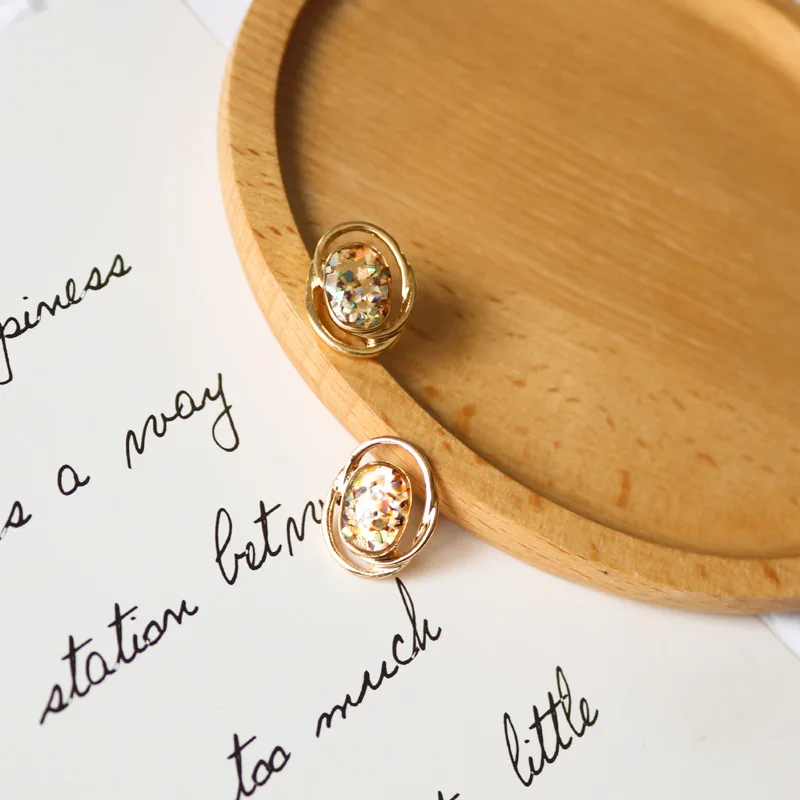 piness
s a way
station betw
too much
little